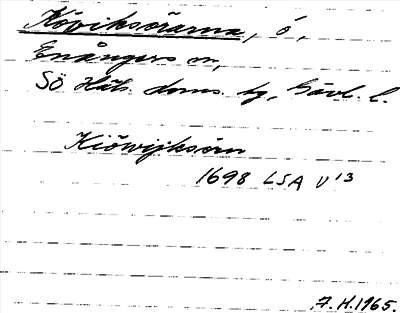 Köviksörarna, ö,
Enångers sn,
Sö Häls. doms. hg, Gävl. l.
Kiöwijksörn
1698 LSA V 13
A.H.1965.